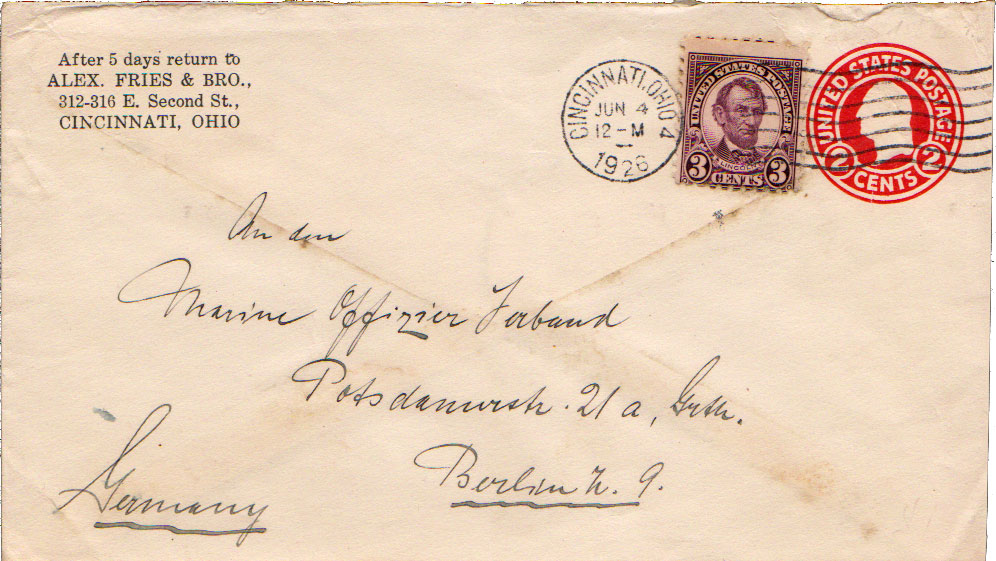 After 5 days return to
ALEX. FRIES & BRO.,
312-316 E. Second St.,
CINCINNATI, OHIO
CINCINNATI, OHIO 4
JUN 4
12-M
1926
UNITED STATES POSTAGE
LINCOLN
3 CENTS 3
UNITED STATES POSTAGE
2 CENTS 2
An den
Marine Offizier Verband
Potsdamerstr. 21 a,
Berlin W. 9.
Germany